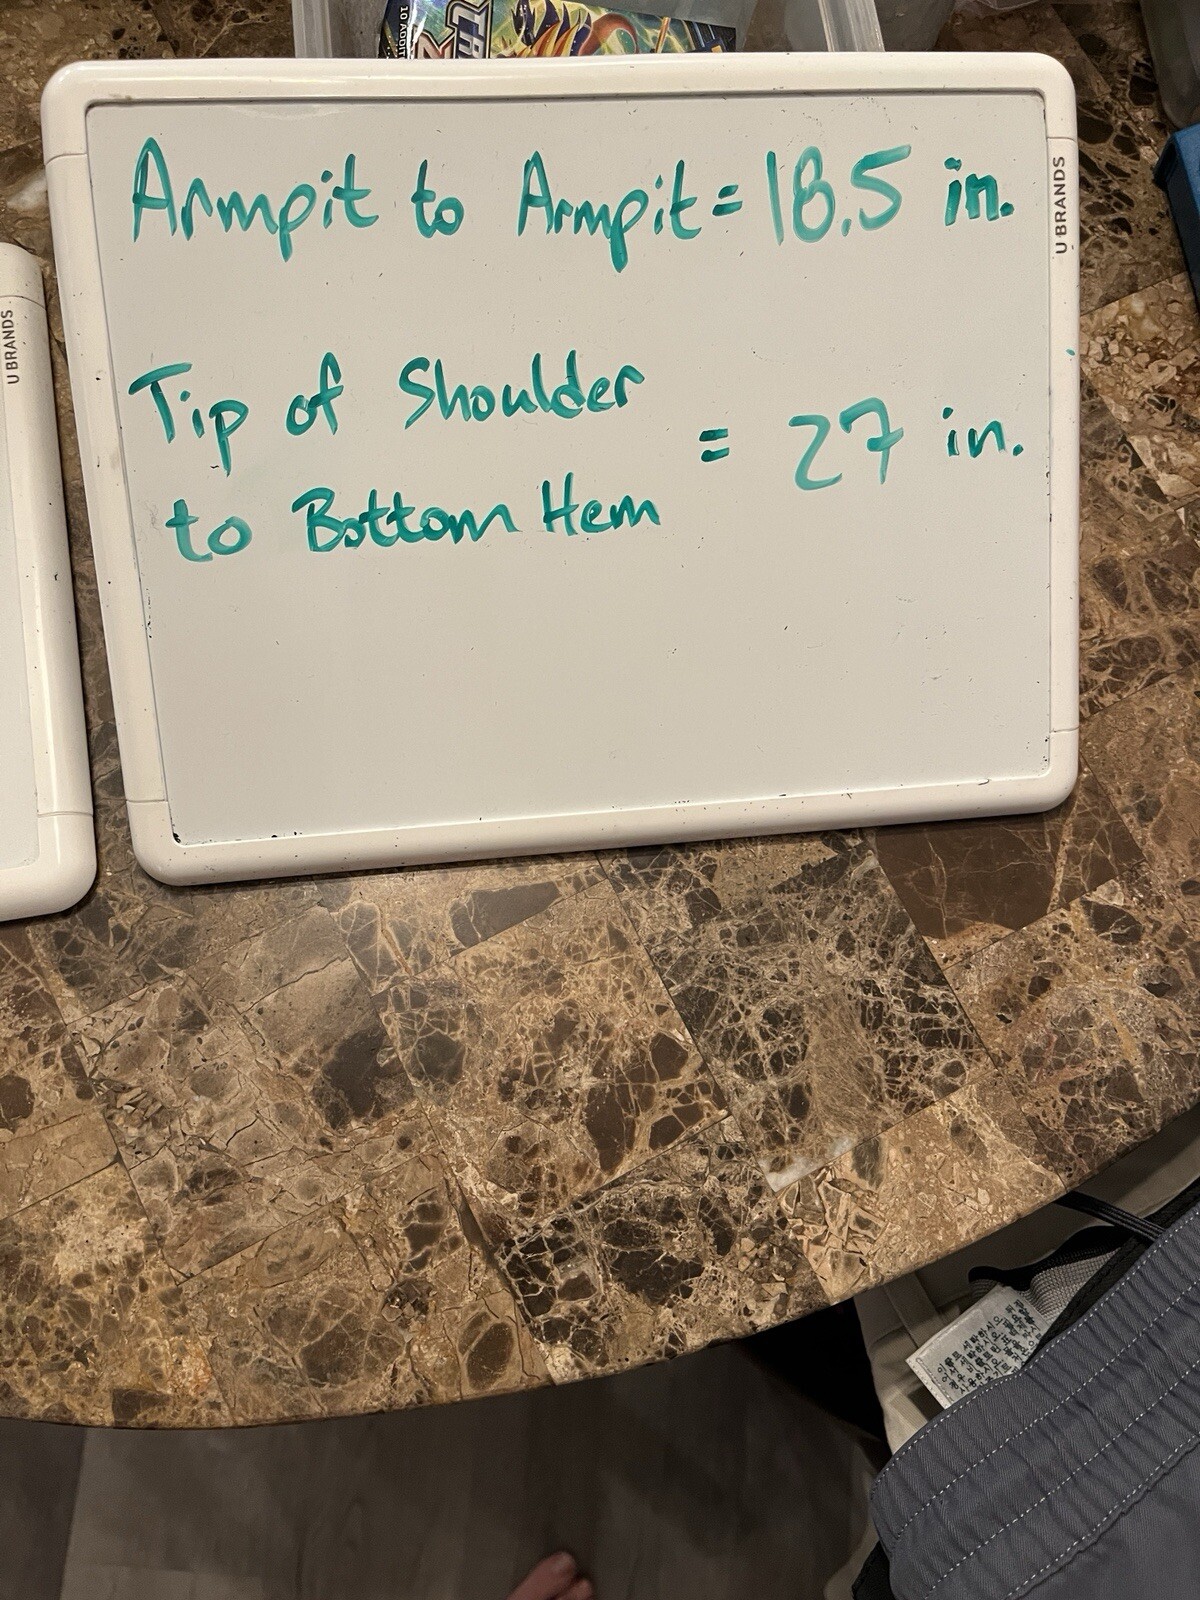 10 ADDIT
Armpit to Armpit = 18.5 in.
U BRANDS
U BRANDS
Tip of Shoulder
= 27 in.
to Bottom Hem